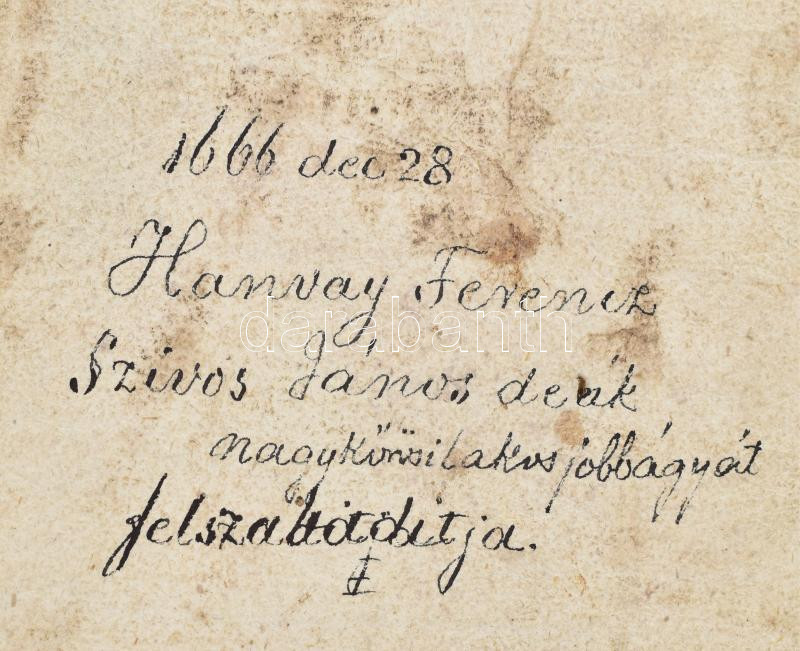 1666 dec 28
Hanvay Ferencz
darabanth
Szivos János deák
nagykőrösi lakos jobbágyát
felszabadítja.
I